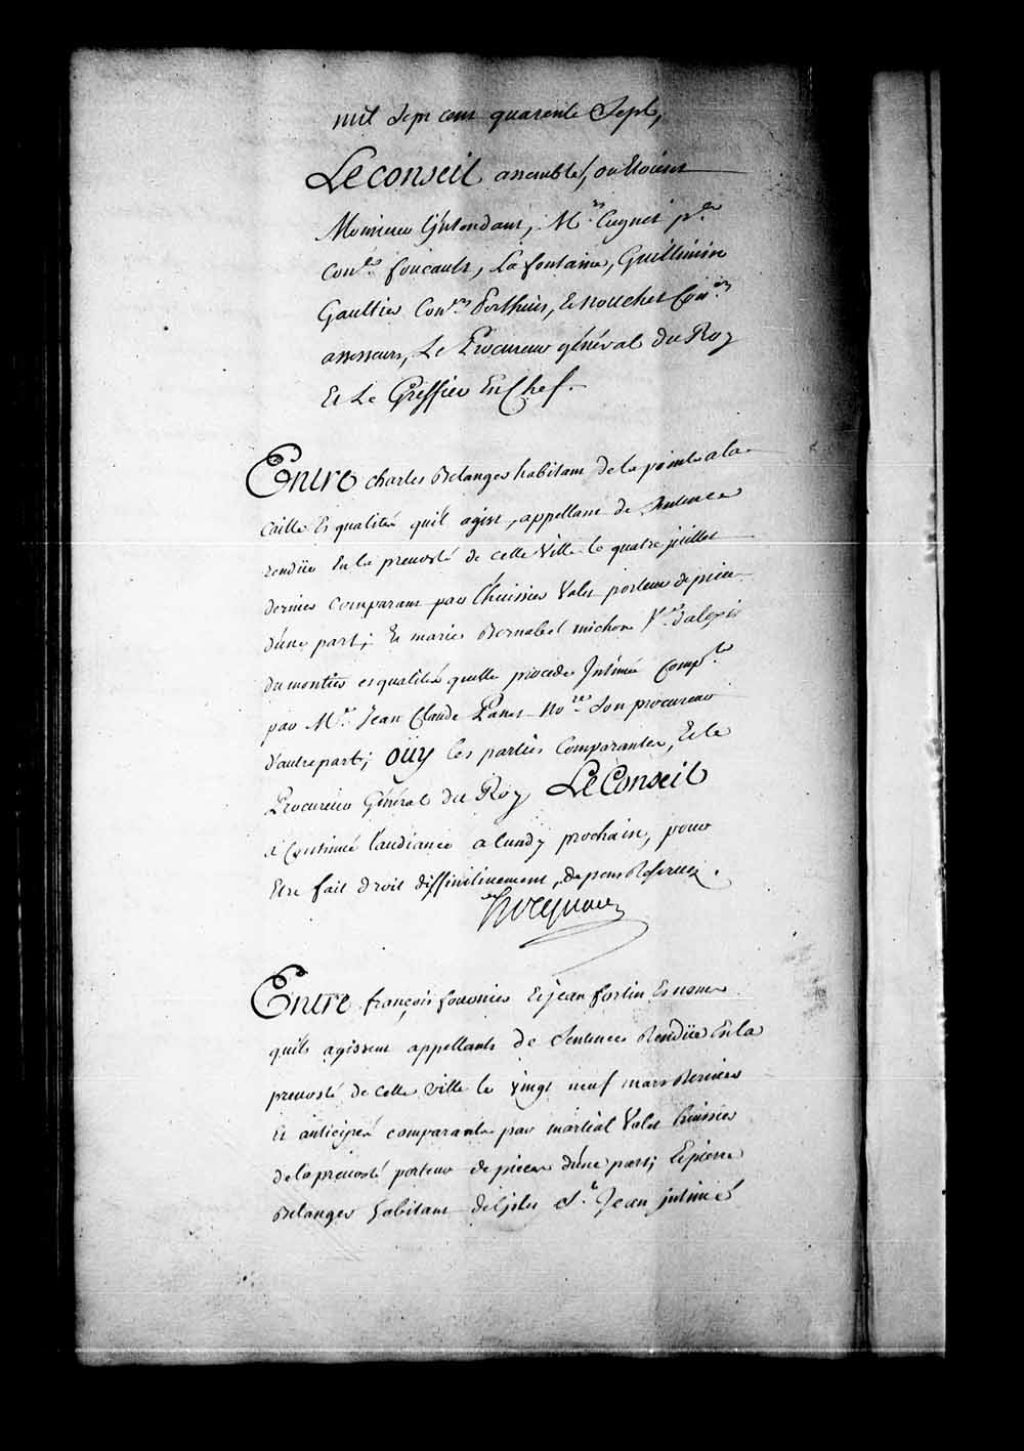 mil sept cens quarente Sept,
Le Conseil assemblé, ou Etoient
Monsieur L'intendant, M.rs Cugnet p.er
Con.er foucault, La fontaine, Guillimin
Gaultier Con.ers Perthuis, Et nouchet Con.ers
assesseurs, Le Procureur général du Roy
Et Le Greffier En Chef.
Entre charles Belanger habitant de la pointe a la
Caille Es qualités quil agist, appellant de Sentence
rendüe En la prevosté de cette Ville le quatre juillet
dernier comparant par L'huissier Valet porteur de pieces
d'une part; Et marie michon V.e d'alexis
du montier esqualités quelle procede Intimée Comp.te
par M.e Jean Claude Panet No.re Son procureur
d'autre part; oüy les parties Comparantes, Et le
Procureur Général du Roy Le Conseil
a Continué l'audiance a lundy prochain, pour
Etre fait droit diffinitivement, depens Reservez.
hocquart
Entre françois fournier Et jean fortin Esnoms
quils agissent appellants de Sentence Rendüe En la
prevosté de cette ville le vingt neuf mars dernier
Et anticipés comparants par martial Valet huissier
de la prevosté porteur de pieces d'une part; Et pierre
Belanger habitant de St. Jean intimé